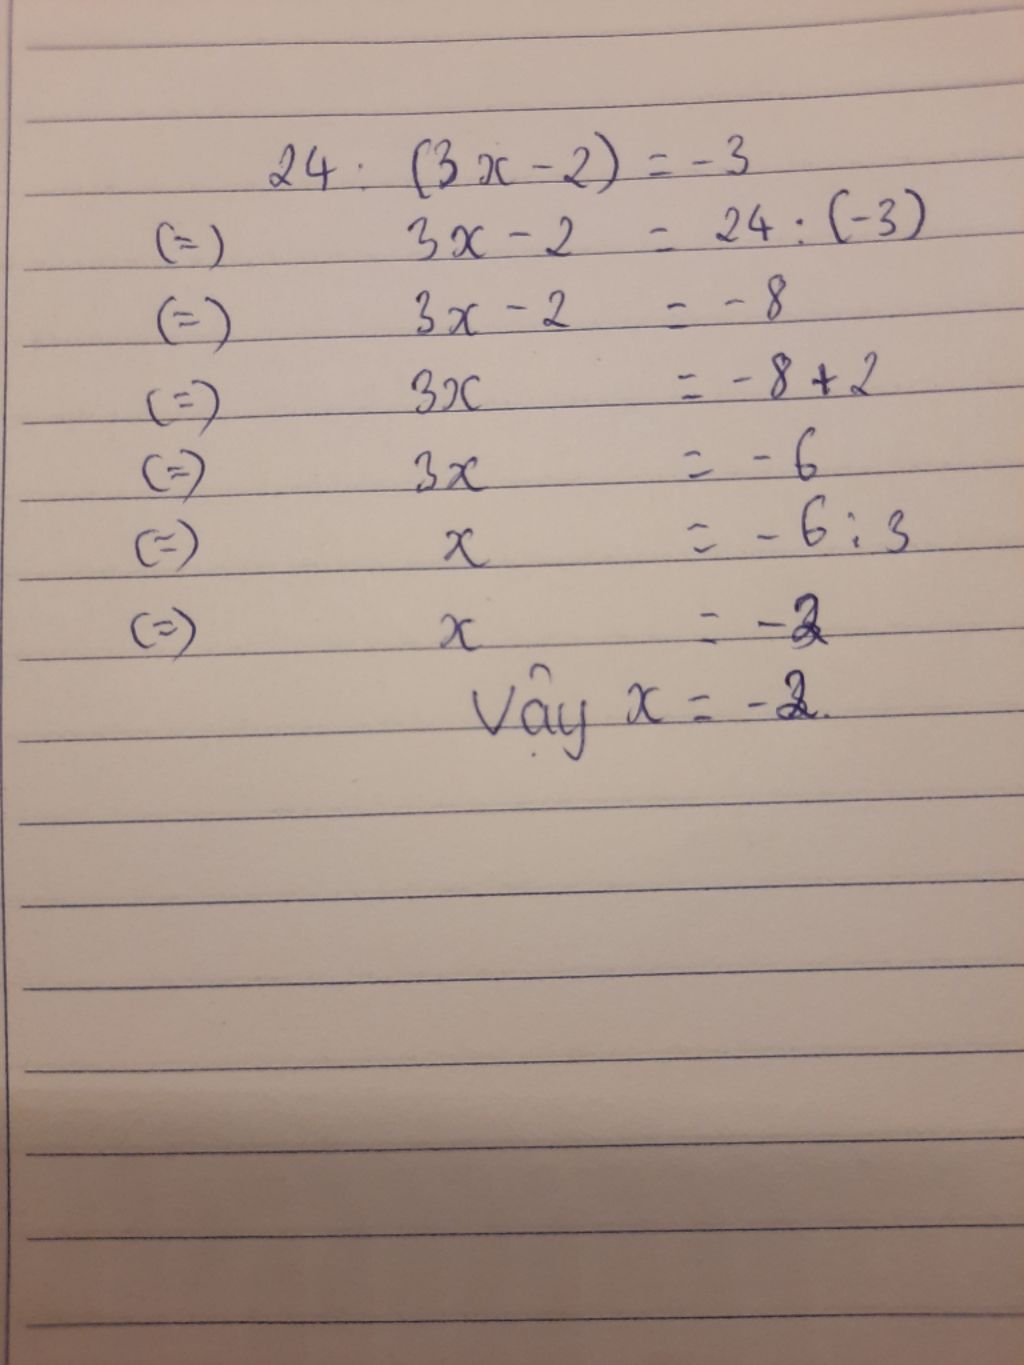 24 : (3x - 2) = -3
(=) 3x - 2 = 24 : (-3)
(=) 3x - 2 = -8
(=) 3x = -8 + 2
(=) 3x = -6
(=) x = -6 : 3
(=) x = -2
Vậy x = -2.